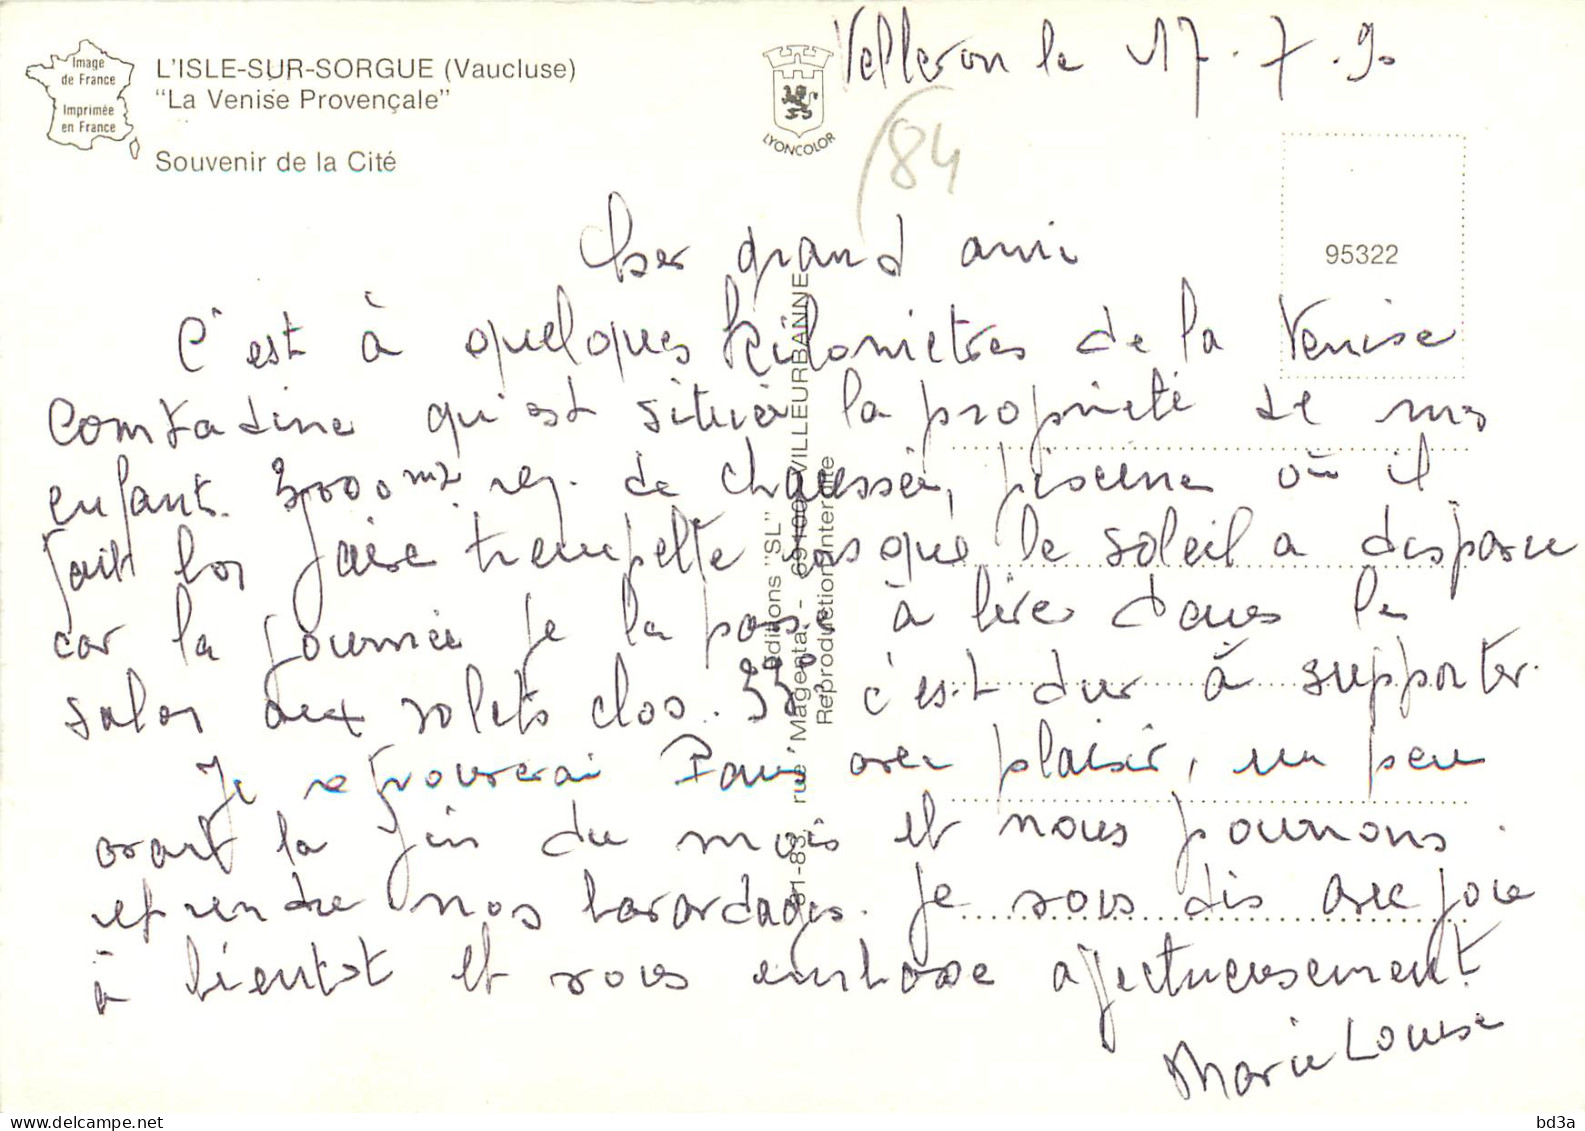 Image
de France
Imprimée
en France
L'ISLE-SUR-SORGUE (Vaucluse)
"La Venise Provençale"
Souvenir de la Cité
LYONCOLOR
Velleron le 17.7.90
(84
95322
Cher grand ami
C'est à quelques kilomètres de la Venise
Comtadine qu'est située la propriété de mes
enfants. 3000 m2 rez. de chaussée, piscine où il
fait bon faire trempette lorsque le soleil a disparu
car la journée je la passe à lire dans le
salon aux volets clos. 33° c'est dur à supporter.
Je retrouverai Paris avec plaisir, un peu
avant la fin du mois et nous pourrons
reprendre nos bavardages. Je vous dis avec joie
à bientôt et vous embrasse affectueusement.
Marie Louise
Editions "SL"
81-83, rue Magenta - 69100 VILLEURBANNE
Reproduction interdite
bd3a
www.delcampe.net